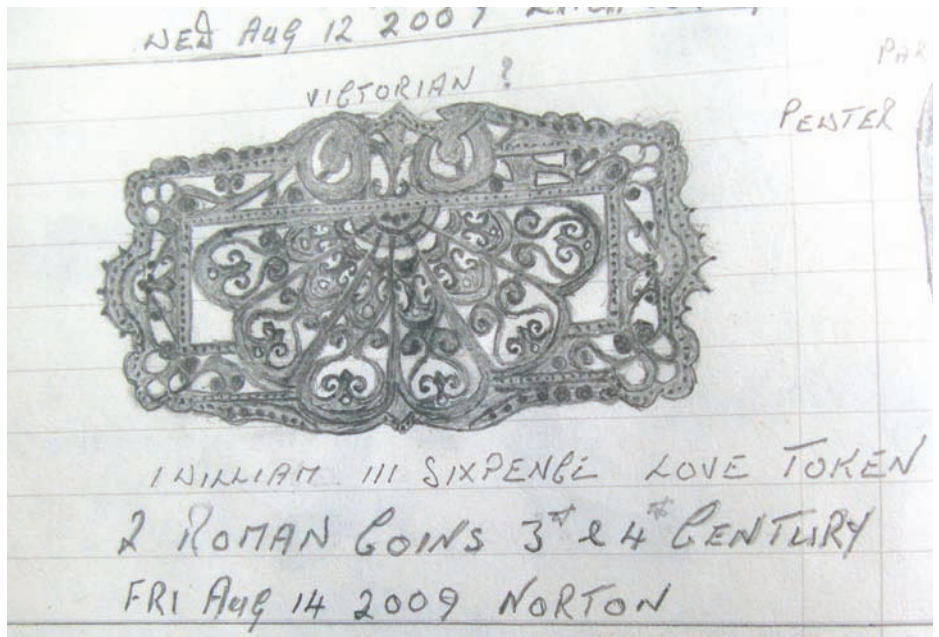 WED AUG 12 2009
VICTORIAN ?
PEWTER
1 WILLIAM III SIXPENCE LOVE TOKEN
2 ROMAN COINS 3rd & 4th CENTURY
FRI AUG 14 2009 NORTON